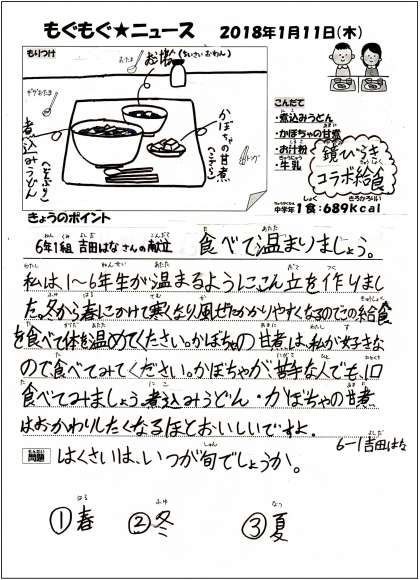 もぐもぐ★ニュース 2018年1月11日(木)
もりつけ
おたま
お汁粉(ちいさいおわん)
ギザおたま
煮込みうどん(どんぶり)
かぼちゃの甘煮(こざら)
トング
こんだて
・煮込みうどん
・かぼちゃの甘煮
・お汁粉
・牛乳
鏡びらき
コラボ給食
中学年 1食:689kcal
きょうのポイント
6年1組 吉田はなさんの献立 食べて温まりましょう。
私は、1〜6年生が温まるようにこん立を作りまし
た。冬から春にかけて寒くなり、風ぜもかかりやすくなるのでこの給食
を食べて体を温めてください。かぼちゃの甘煮は、私が好きな
ので食べてみてください。かぼちゃが苦手な人でも、1口
食べてみましょう。煮込みうどん・かぼちゃの甘煮
はおかわりしたくなるほどおいしいですよ。
6-1 吉田はな
問題 はくさいは、いつが旬でしょうか。
①春 ②冬 ③夏